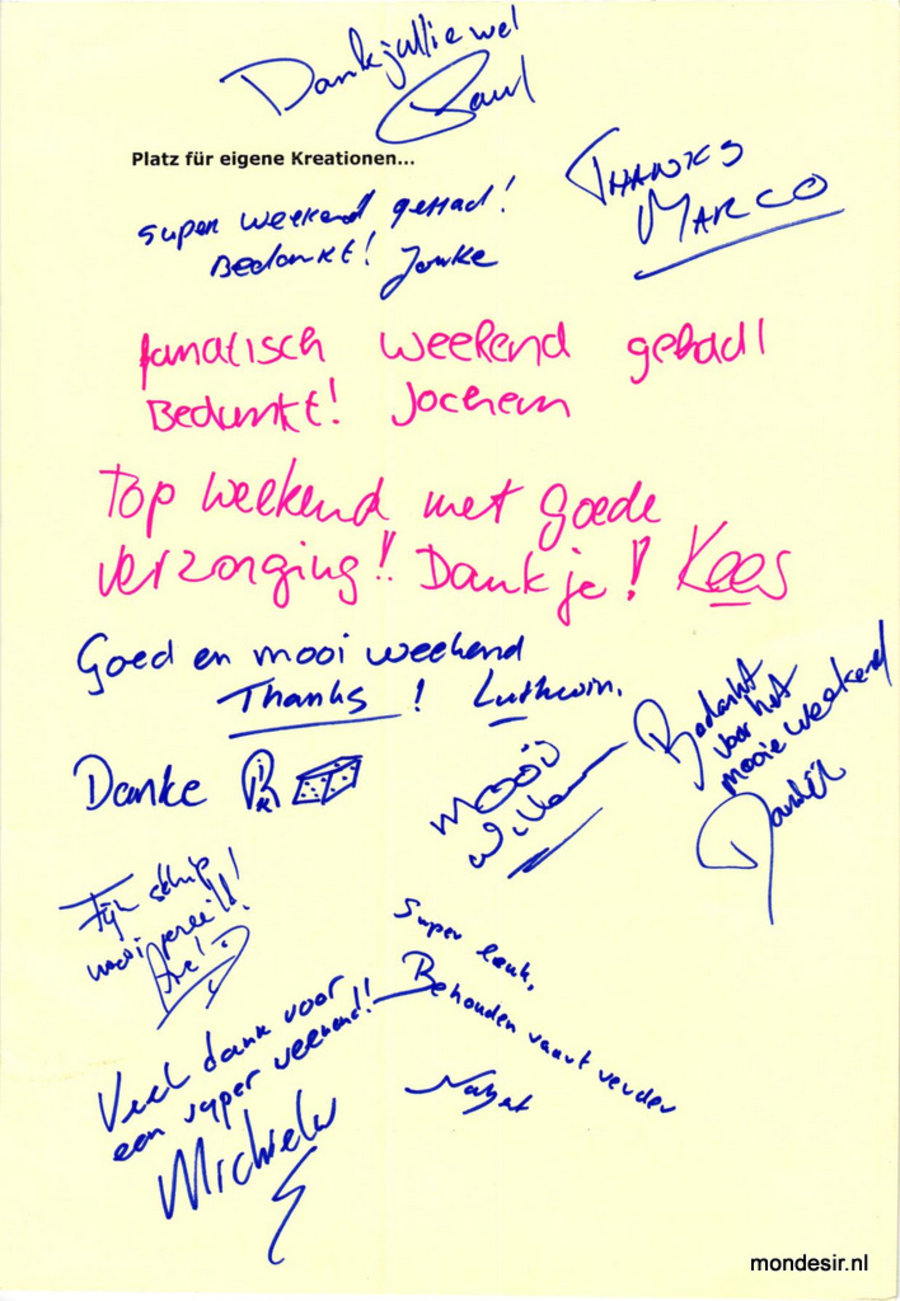 Dank jullie wel
Paul
Platz für eigene Kreationen...
THANKS
MARCO
super weekend gehad!
Bedankt! Jouke
fanatisch weekend gehad!
Bedankt! Jochem
Top weekend met goede
verzorging!! Dank je! Kees
Goed en mooi weekend
Thanks! Luthwin.
Danke
mooi
Willem
Bedankt
voor het
mooie weekend
Fijn schip
mooi
Super leuk,
Behouden vaart verder
Veel dank voor
een super weekend!!
Michiel
mondesir.nl